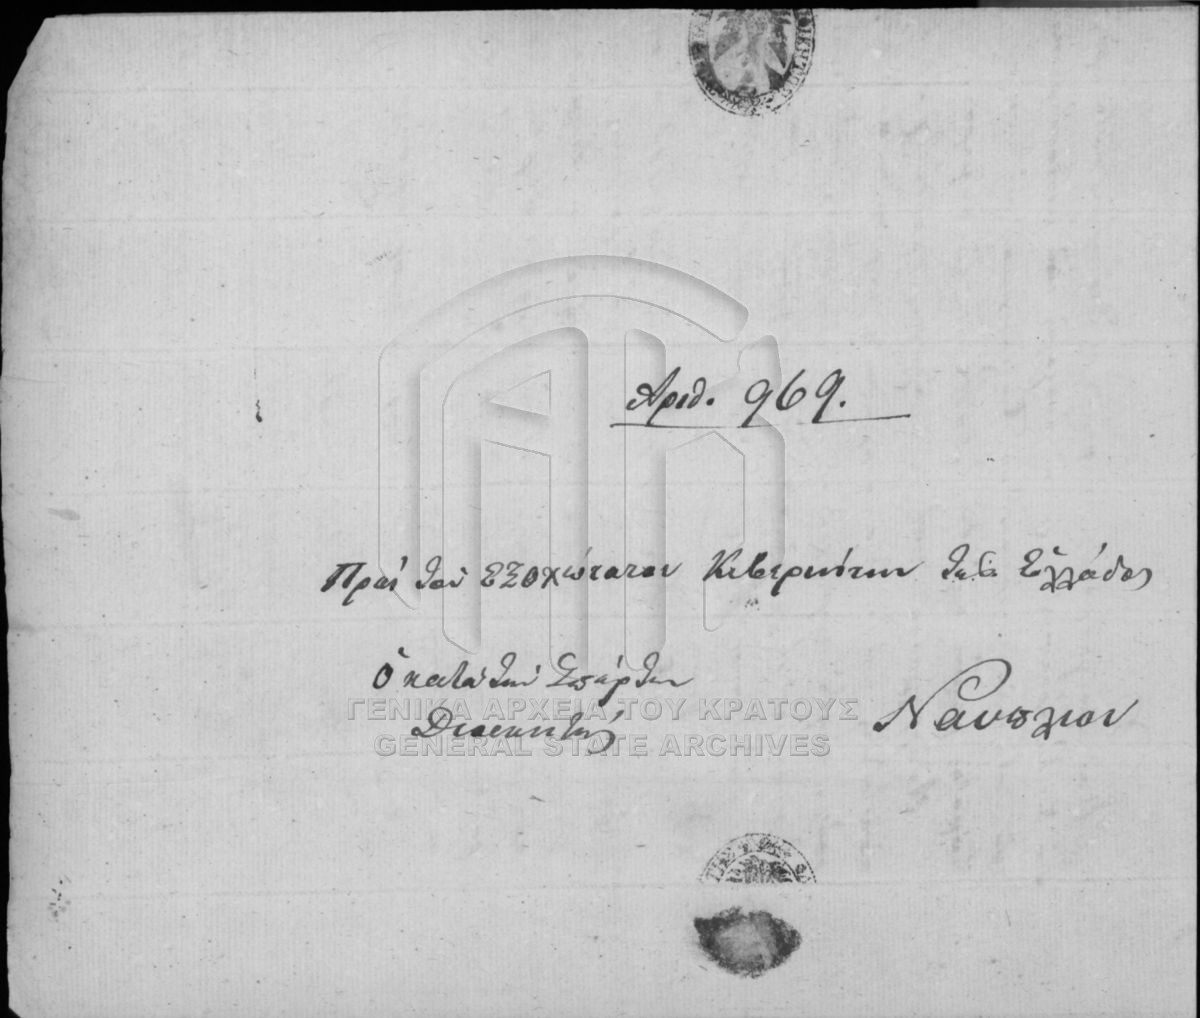 Αριθ. 969.
Πρός τον εξοχώτατον Κυβερνήτην της Ελλάδος
Ὁ κατά την Σπάρτην
Διοικητής
Ναυπλιον
ΓΕΝΙΚΑ ΑΡΧΕΙΑ ΤΟΥ ΚΡΑΤΟΥΣ
GENERAL STATE ARCHIVES